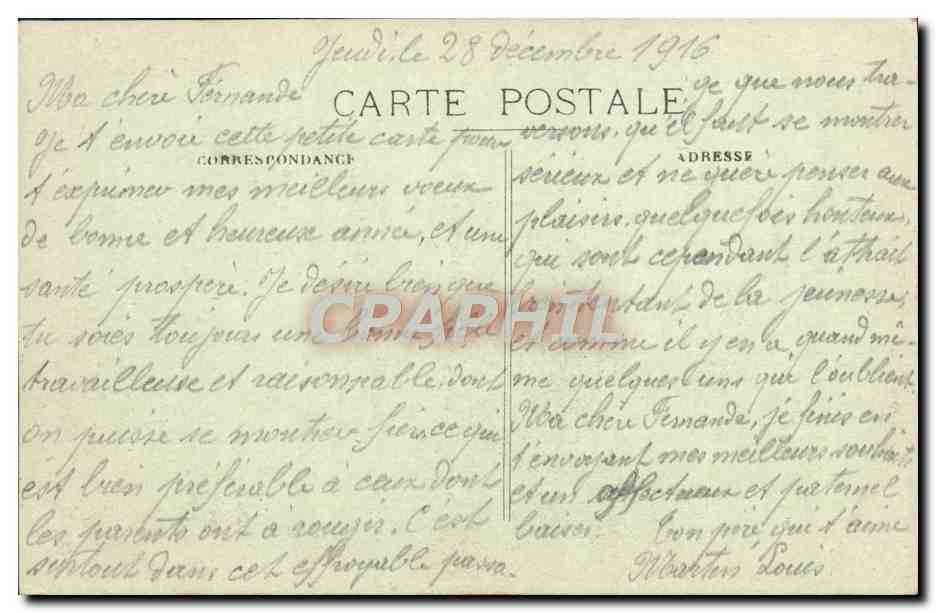 Jeudi, le 28 décembre 1916
Ma chère Fernande
CARTE POSTALE
Je t'envoie cette petite carte pour
CORRESPONDANCE
t'exprimer mes meilleurs voeux
de bonne et heureuse année, et une
santé prospère. Je désire bien que
tu soies toujours une bonne
travailleuse et raisonnable, dont
on puisse se montrer fier, ce qui
est bien préférable à ceux dont
les parents ont à rougir. C'est
surtout dans cet effroyable passa-
ge que nous tra-
versons, qu'il faut se montrer
ADRESSE
sérieux et ne guère penser aux
plaisirs, quelquefois honteux,
qui sont cependant l'attrait
de la jeunesse,
et comme il y en a quand mê-
me quelques uns qui l'oublient.
Ma chère Fernande, je finis en
t'envoyant mes meilleurs souhaits
et un affectueux et paternel
baiser. Ton père qui t'aime
Martin Louis
CPAPHIL